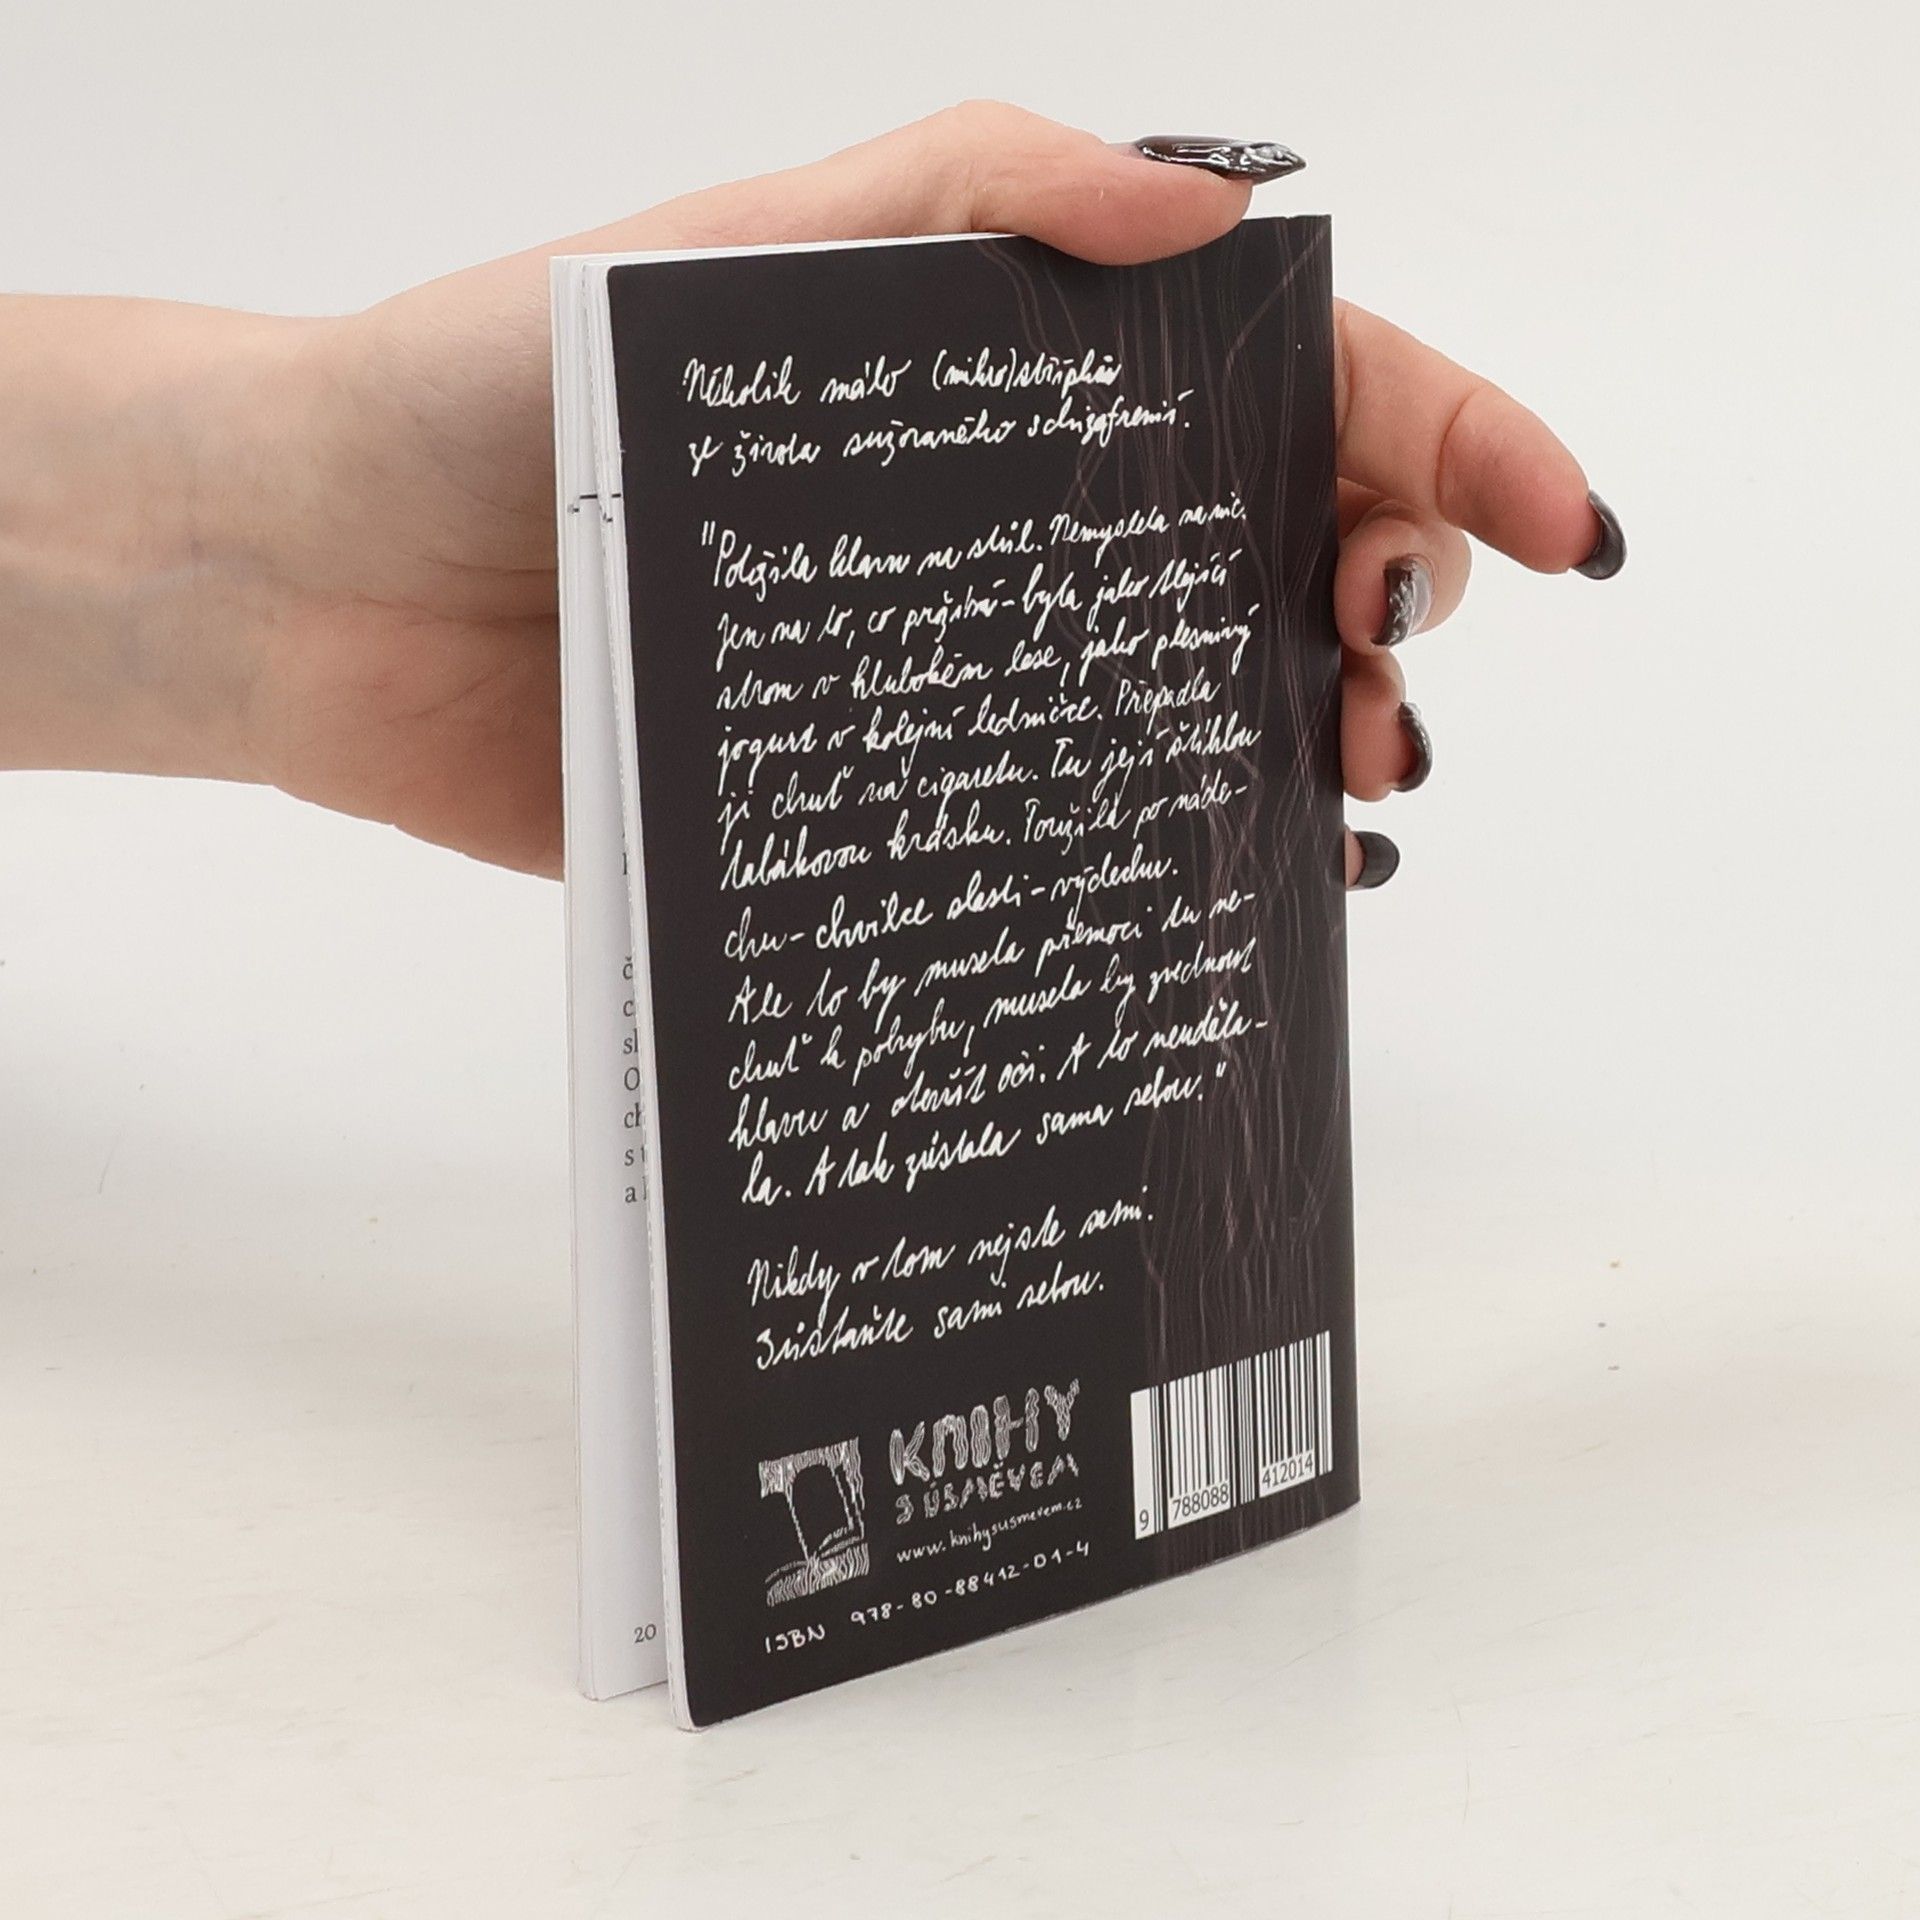 Několik málo (mikro)střípků
ze života sužovaného schizofrenií.
"Položila hlavu na stůl. Nemyslela na nic.
Jen na to, co prožívá – byla jako tlející
strom v hlubokém lese, jako plesnivý
jogurt v kolejní ledničce. Přepadla
ji chuť na cigaretu. Tu její štíhlou
tabákovou krásku. Toužila po náde-
chu – chvilce slasti – výdechu.
Ale to by musela přemoci tu ne-
chuť k pohybu, musela by zvednout
hlavu a otevřít oči. A to neuděla-
la. A tak zůstala sama sebou."
Nikdy v tom nejste sami.
Zůstaňte sami sebou.
KNIHY
S ÚSMĚVEM
www.knihysusmevem.cz
ISBN 978-80-88412-01-4
9 788088 412014
20